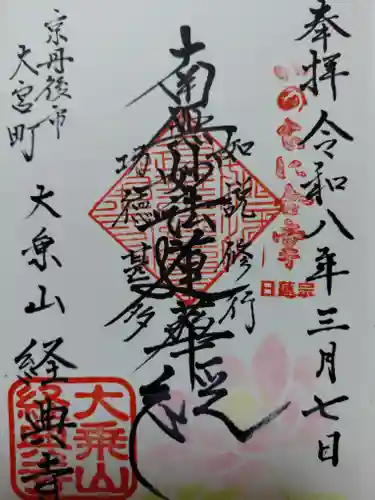 奉拝 令和八年三月七日
いのちに合掌
日蓮宗
如説修行
南無妙法蓮華経
功徳甚多
京丹後市
大宮町
大乗山 経典寺
大乗山
経典寺